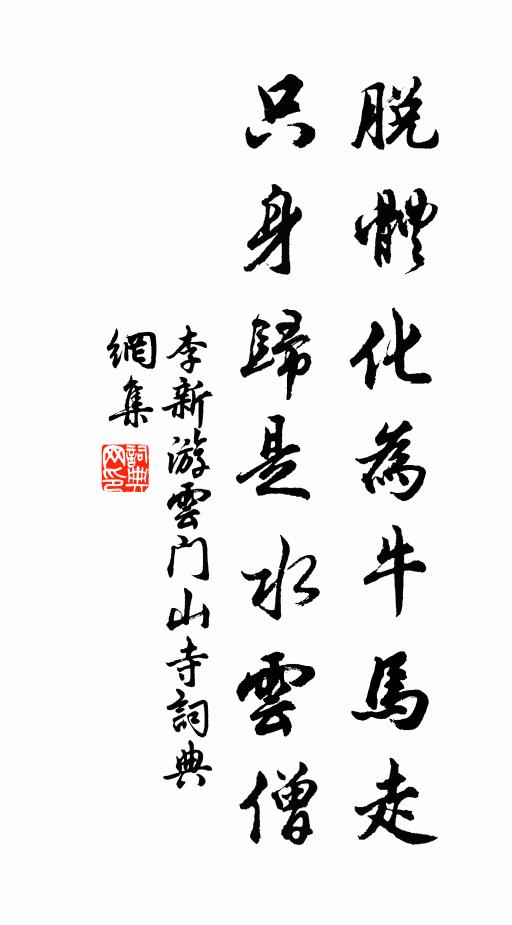 脫體化為牛馬走
只身歸是水雲僧
李新游雲門山寺詞典
網集
詞典
网印